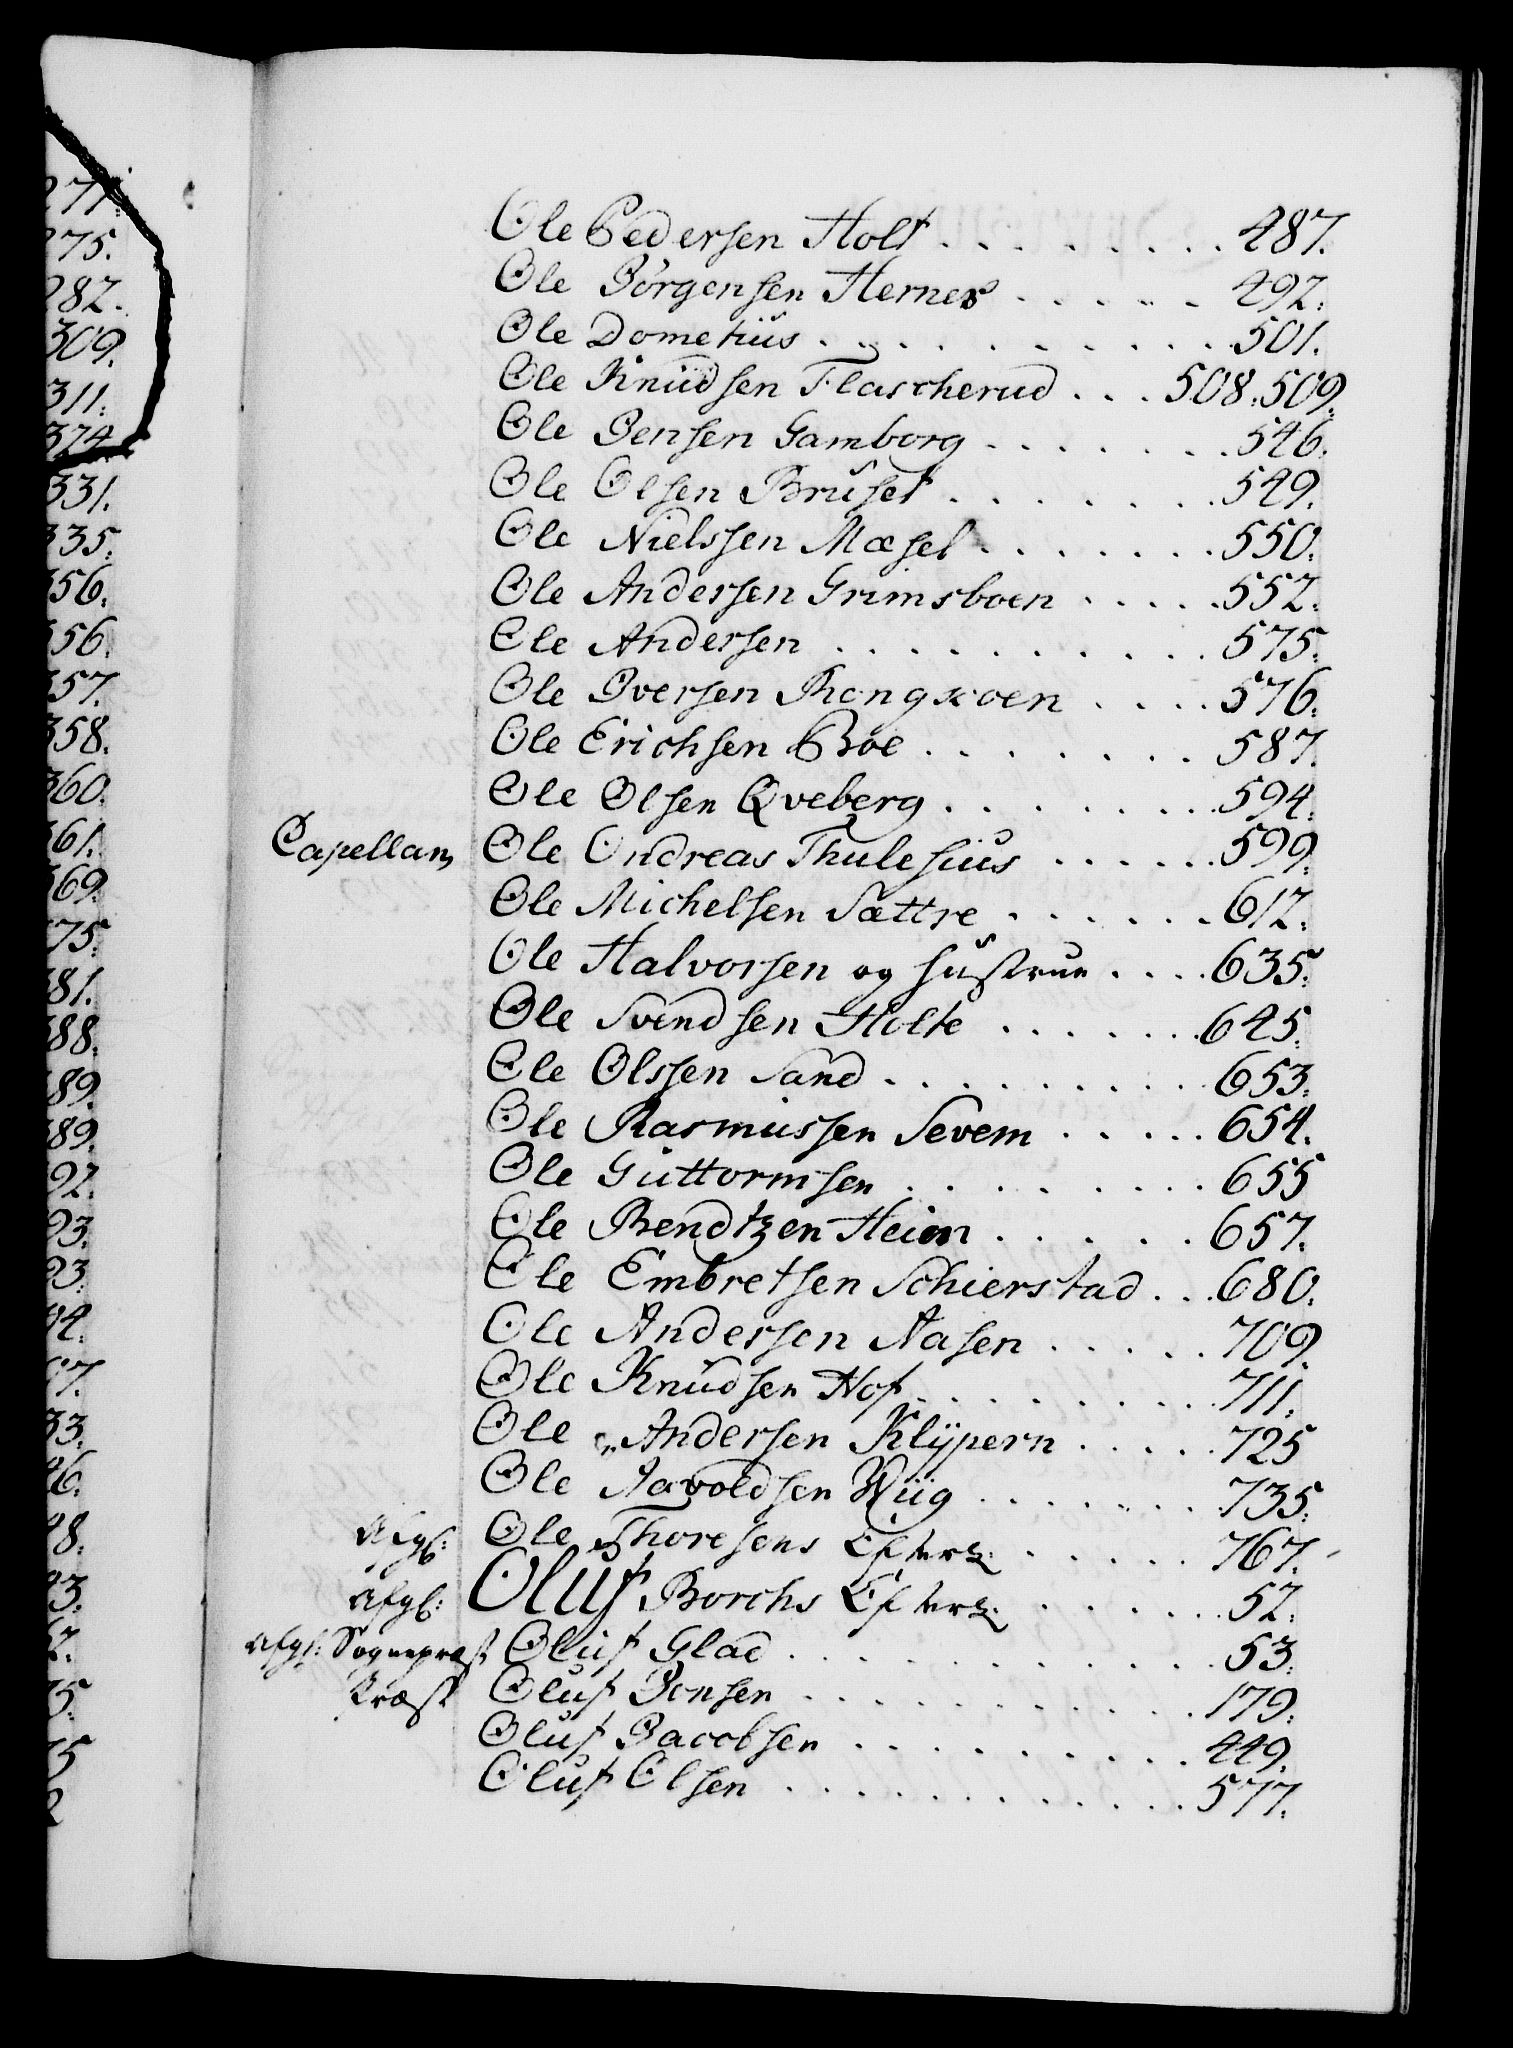 271.
275.
282.
309.
311.
374.
331.
335.
356.
356.
357.
358.
360.
361.
369.
375.
381.
388.
389.
389.
92.
93.
93.
94.
97.
33.
96.
98.
93.
2.
15.
15
2
Ole Pedersen Holt . . . . . . . . 487.
Ole Jörgensen Hernes . . . . . 492.
Ole Dometius . . . . . . . . . . 501.
Ole Knudsen Flascherud . . . 508. 509.
Ole Jensen Gamborg . . . . . . . 546.
Ole Olsen Bruset . . . . . . . 549.
Ole Nielssen Mæsel . . . . . . . 550.
Ole Andersen Grimsboen . . . . . 552.
Ole Andersen . . . . . . . . . . 575.
Ole Iversen Rongxoen . . . . 576.
Ole Erichsen Boe . . . . . . . 587.
Ole Olsen Qveberg . . . . . . . 594.
Capellan, Ole Ondreas Thulesius . . . . . . 599.
Ole Michelsen Sættre . . . . . . 612.
Ole Halvorsen og Hustrue . . . . 635.
Ole Svendsen Holte . . . . . . 645.
Ole Olssen Sand . . . . . . . . . 653.
Ole Rasmussen Sevem . . . . . 654.
Ole Guttormsen . . . . . . . . 655
Ole Bendtzen Heim . . . . . 657.
Ole Embretsen Schierstad . . . 680.
Ole Andersen Aasen . . . . . 709.
Ole Knudsen Hof . . . . . . . . 711.
Ole Andersen Klÿpern . . . . . 725
Ole Aavoldsen Wiig . . . . . . . 735.
Afgl: Ole Thoresens Efterl: . . . . . . 767.
Afgl: Oluf Borchs Efterl: . . . . . . 52.
Afgl: Sognepræst Oluf Glad . . . . . . . . . . . 53.
Præst Oluf Jonsen . . . . . . . . . . 179.
Oluf Jacobsen . . . . . . . . . 449.
Oluf Olsen . . . . . . . . . . . 577.